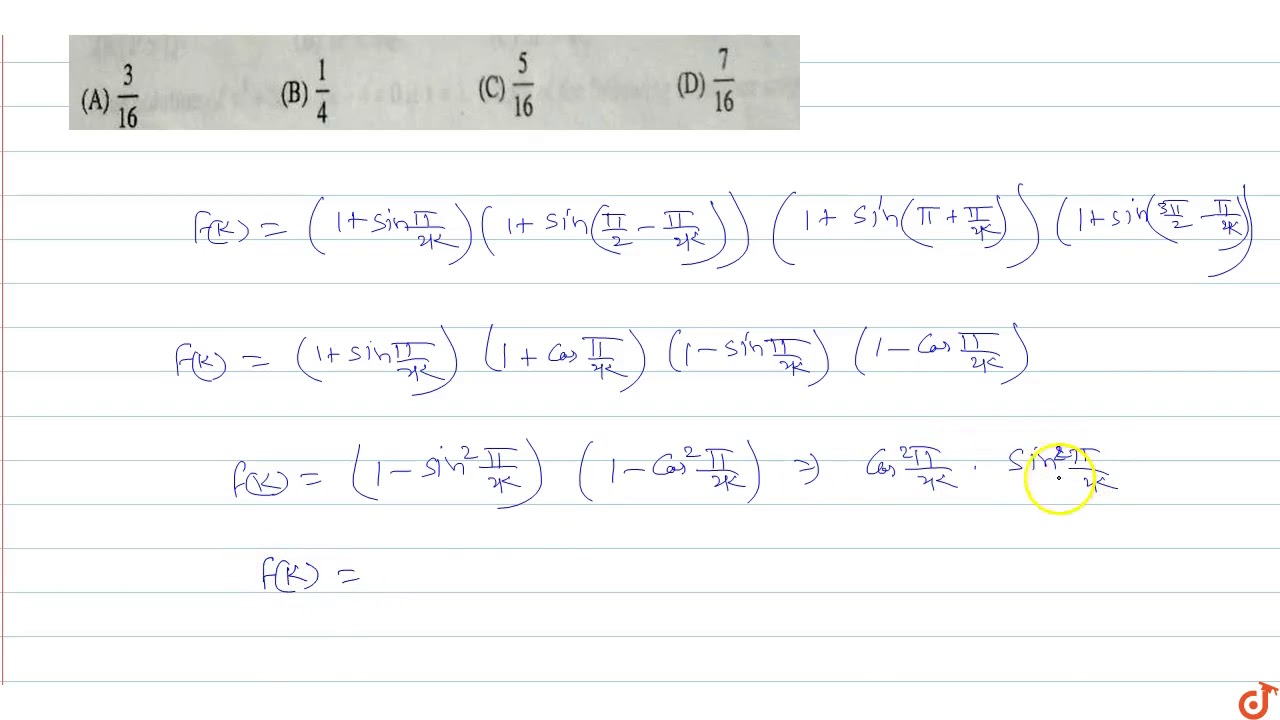 (A) 3/16 (B) 1/4 (C) 5/16 (D) 7/16
f(K) = (1 + sin π/2K) (1 + sin(π/2 − π/2K)) (1 + sin(π + π/2K)) (1 + sin(3π/2 − π/2K))
f(K) = (1 + sin π/2K) (1 + cos π/2K) (1 − sin π/2K) (1 − cos π/2K)
f(K) = (1 − sin² π/2K) (1 − cos² π/2K) ⇒ cos² π/2K · sin² π/2K
f(K) =